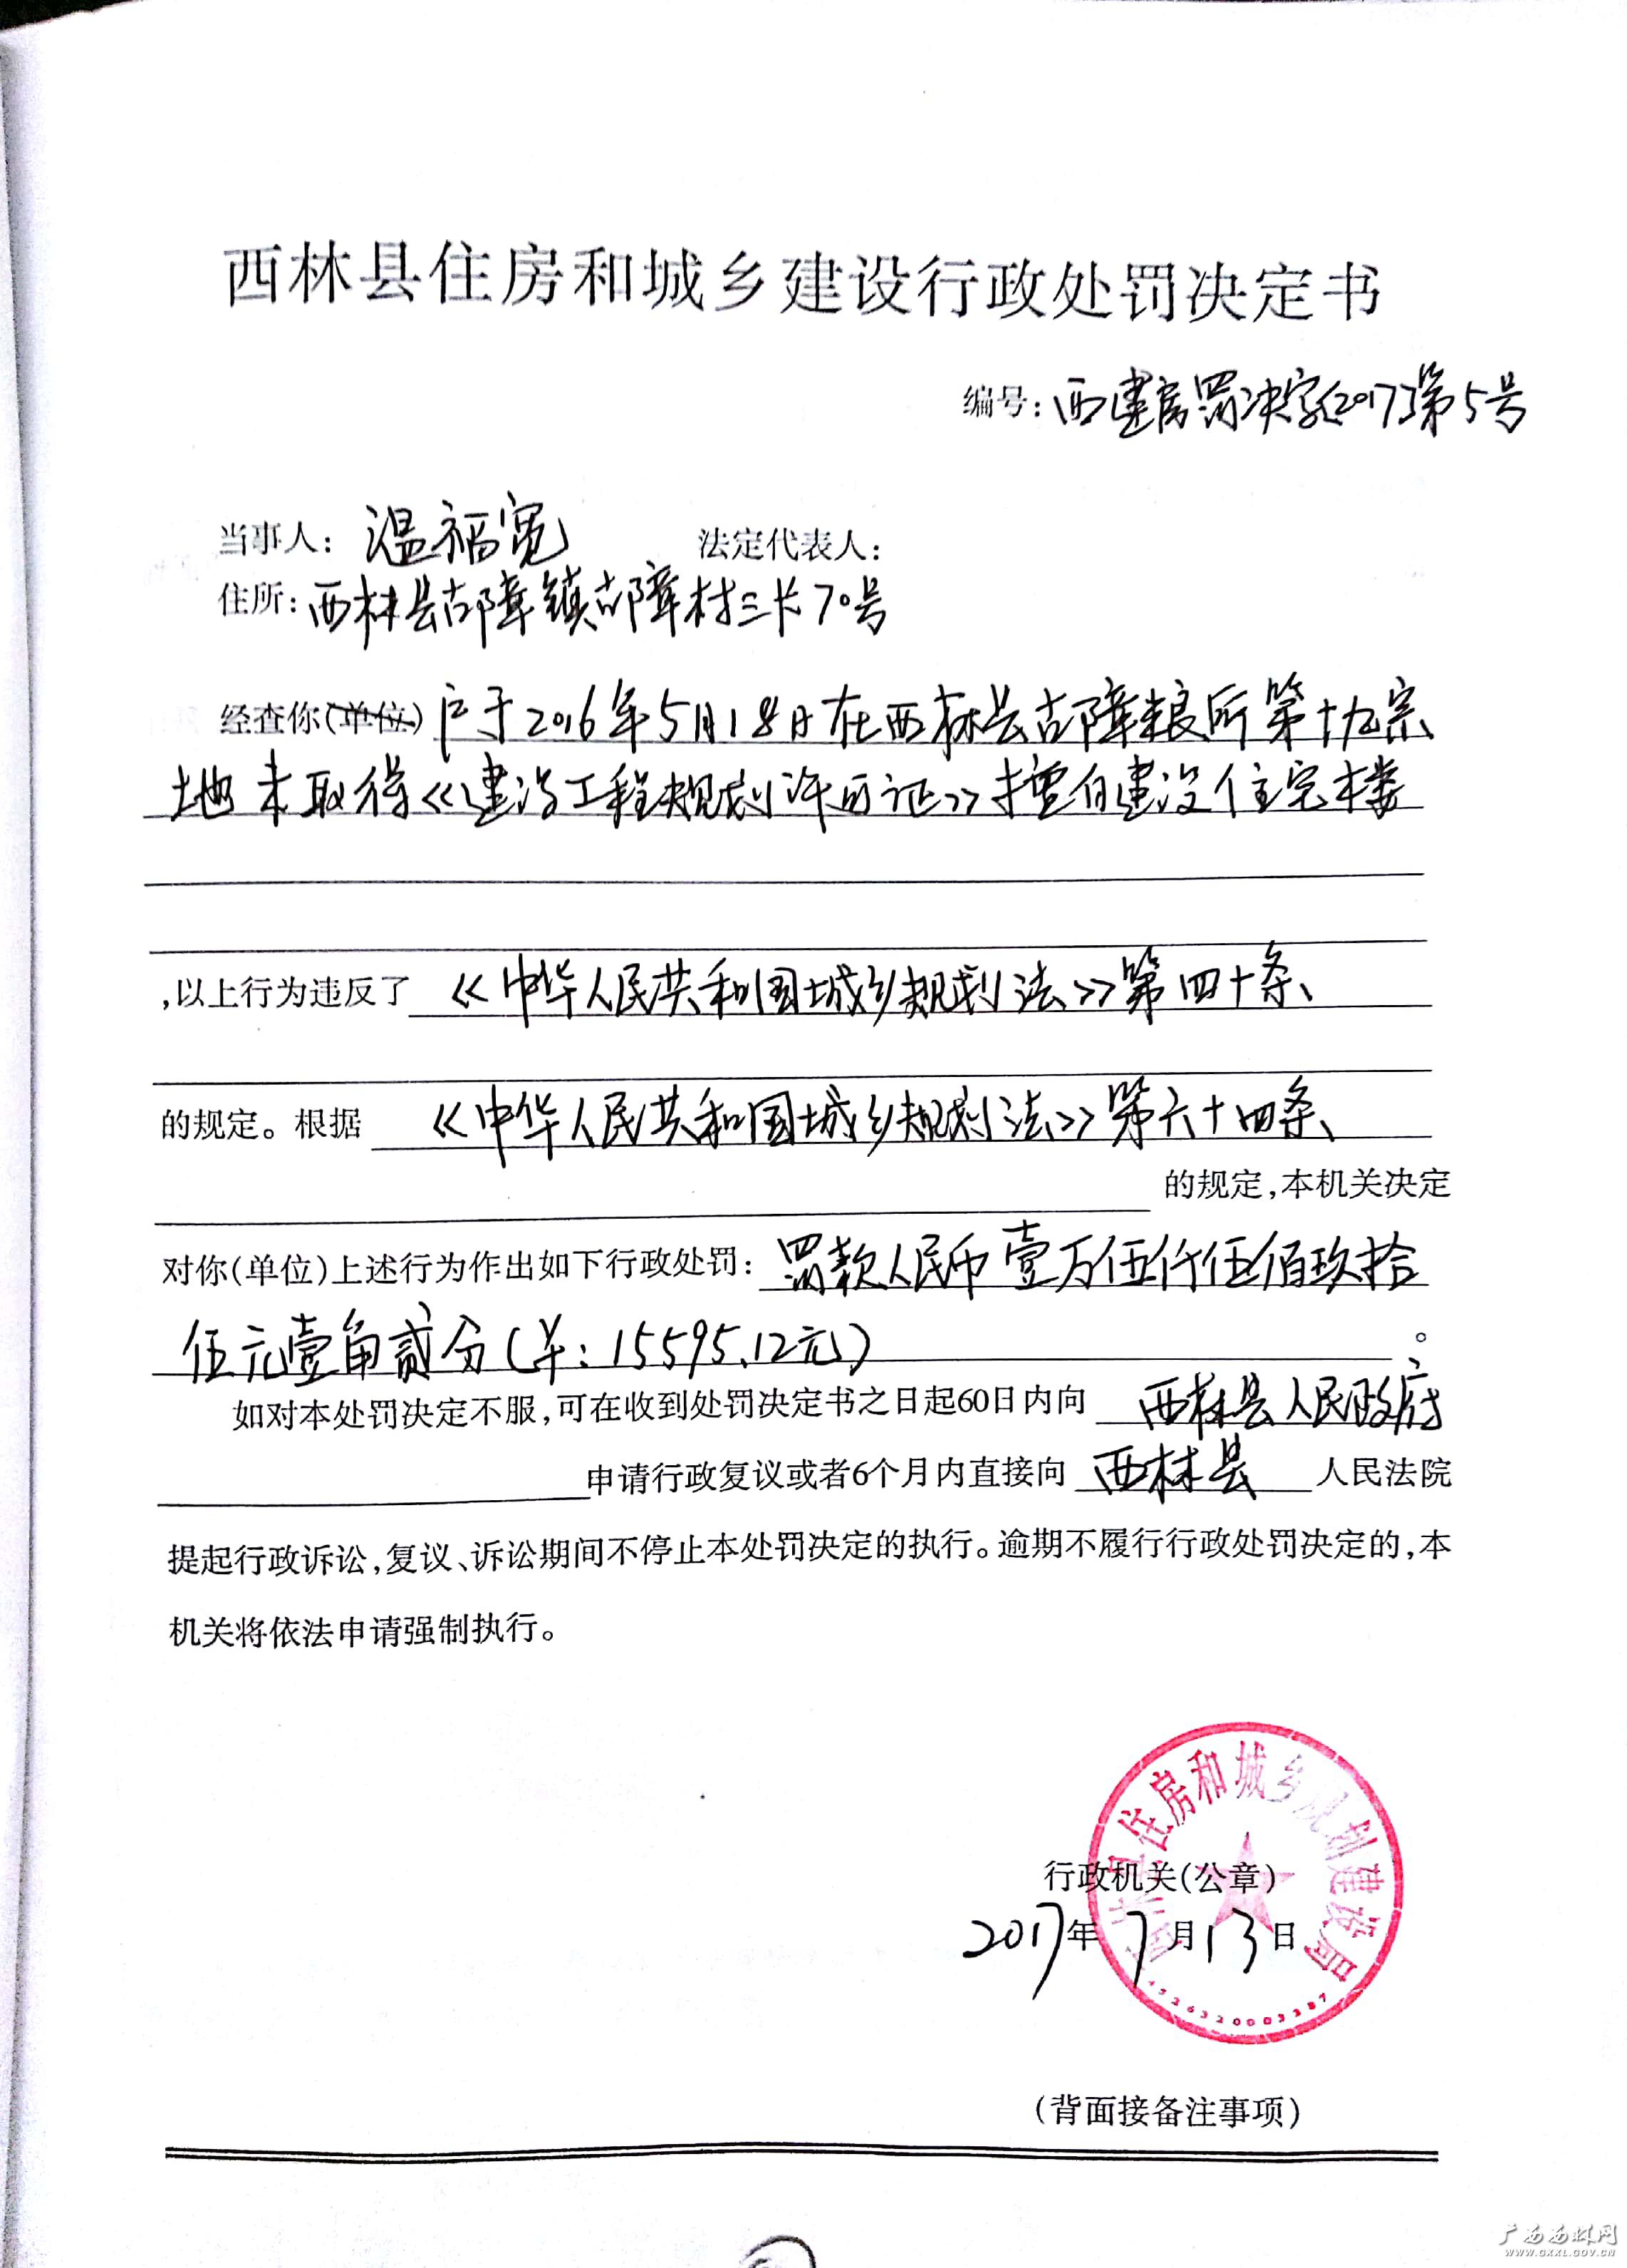 西林县住房和城乡建设行政处罚决定书
编号:西建房罚决字[2017]第5号
当事人:温福宽 法定代表人:
住所:西林县古障镇古障村三卡70号
经查你(单位)户于2016年5月18日在西林县古障粮所第十九宗
地未取得《建设工程规划许可证》擅自建设住宅楼
,以上行为违反了《中华人民共和国城乡规划法》第四十条、
的规定。根据《中华人民共和国城乡规划法》第六十四条、
的规定,本机关决定
对你(单位)上述行为作出如下行政处罚:罚款人民币壹万伍仟伍佰玖拾
伍元壹角贰分(¥:15595.12元)。
如对本处罚决定不服,可在收到处罚决定书之日起60日内向西林县人民政府
申请行政复议或者6个月内直接向西林县人民法院
提起行政诉讼,复议、诉讼期间不停止本处罚决定的执行。逾期不履行行政处罚决定的,本
机关将依法申请强制执行。
住房和城乡规划建设局
行政机关(公章)
2017年7月13日
(背面接备注事项)
广西西林网
WWW.GXXL.GOV.CN